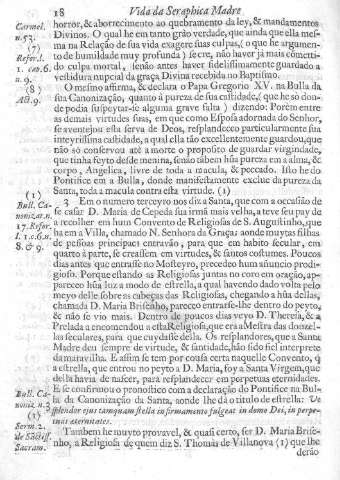 18 Vida da Seraphica Madre
horror, & aborrecimento ao quebramento da ley, & mandamentos
Divinos. O qual he em tanto grão verdade, que ainda que ella mes-
ma na Relação de sua vida exagere suas culpas, (o que he argumen-
to de humildade muy profunda) se crè, não haver já mais cometti-
do culpa mortal, senão antes haver fidelissimamente guardado a
vestidura nupcial da graça Divina recebida no Baptismo.
O mesmo affirma, & declara o Papa Gregorio XV. na Bulla da
sua Canonização, quanto á pureza de sua castidade, (de que se não
podia suspeytar-se alguma grave falta) dizendo: Porèm entre
as demais virtudes suas, em que como Esposa adornada do Senhor,
se aventejou esta serva de Deos, resplandeceo particularmente sua
inteyrissima castidade, a qual ella tão excellentemente guardou, que
não só conservou atè a morte o proposito de guardar virgindade,
que tinha feyto desde menina, senão tãbem hũa pureza em a alma, &
corpo, Angelica, livre de toda a macula, & peccado. Isto he do
Pontifice em a Bulla, donde manifestamente exclue da pureza da
Santa, toda a macula contra esta virtude. (1)
3 Em o numero terceyro nos diz a Santa, que com a occasião de
se casar D. Maria de Cepeda sua irmã mais velha, a teve seu pay de
a recolher em hum Convento de Religiosas de S. Augustinho, que
ha em a Villa, chamado N. Senhora da Graça: aonde muytas filhas
de pessoas principaes entravão, para que em habito secular, em
quarto á parte, se creassem em virtudes, & santos costumes. Poucos
dias antes que entrasse no Mosteyro, precedeo hum anuncio prodi-
gioso. Porque estando as Religiosas juntas no coro em oração, ap-
pareceo hũa luz a modo de estrella, a qual havendo dado volta pelo
meyo delle sobre as cabeças das Religiosas, chegando a hũa dellas,
chamada D. Maria Briseño, pareceo entrarse-lhe dentro do peyto,
& não se vio mais. Dentro de poucos dias veyo D. Theresa, & a
Prelada a encomendou a esta Religiosa, que era a Mestra das donzel-
las seculares, para que cuydasse della. Os resplandores, que a Santa
Madre deu sempre de virtude, & santidade, hão sido fiel interprete
da maravilha. E assim se tem por cousa certa naquelle Convento, q̃
a estrella, que entrou no peyto a D. Maria, foy a Santa Virgem, que
delta havia de nascer, para resplandecer em perpetuas eternidades.
E se confirmou o pronostico com a declaração do Pontifice na Bul-
la da Canonização da Santa, aonde lhe dá o titulo de estrella: Ut
splendor ejus tamquam stella in firmamento fulgeat in domo Dei, in perpe-
tuas æternitates.
Tambem he muyto provavel, & quasi certo, ser D. Maria Brise-
nho, a Religiosa de quem diz S. Thomas de Villanova (1) que lhe
derão
Carmel.
n. 53.
(7)
Refor. l.
1. cap. 6.
n. 9.
(8)
Act. 9.
(1)
Bull. Ca-
noniz. ar. n.
17. Refor.
l. 1. c. 6. n.
8. & 9.
Bull. Ca-
noniz. n. 3
(1)
Serm. 2.
de Sacéss.
Sacram.